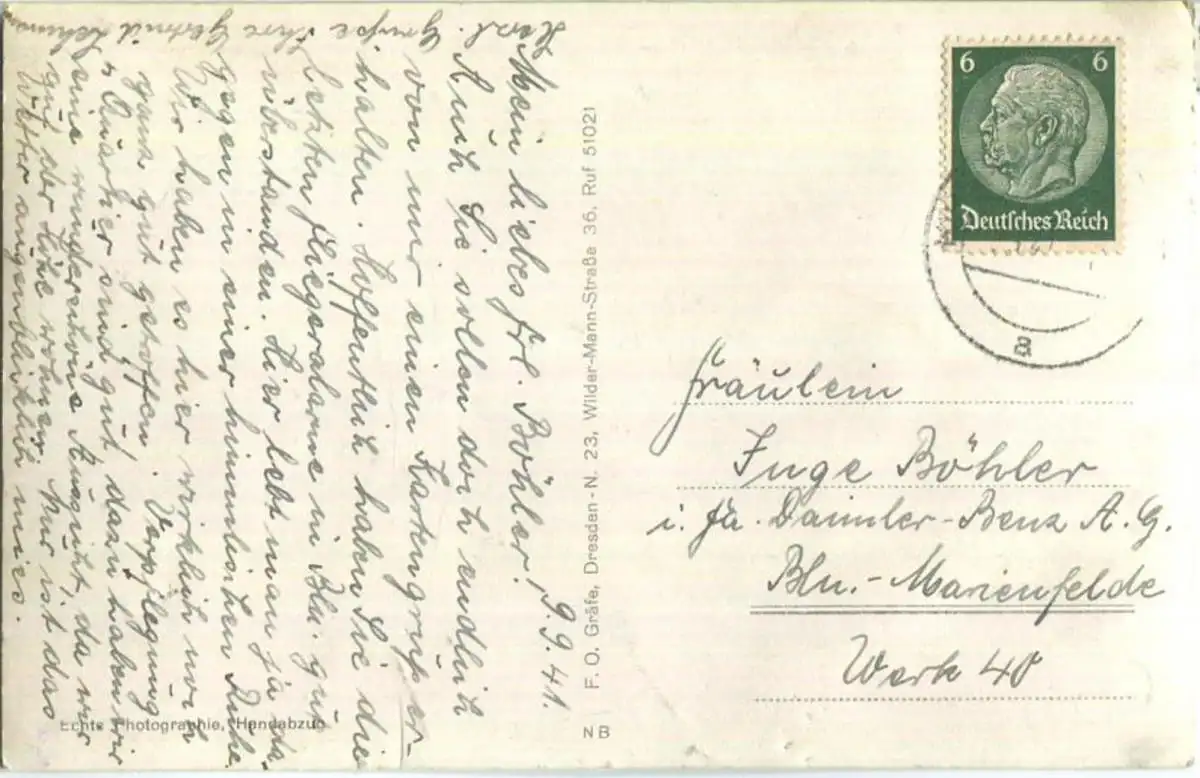 9.9.41.
Mein liebes Frl. Böhler!
Auch Sie sollen doch endlich
von mir einen Kartengruß er-
halten. Hoffentlich haben Sie die
letzten Fliegeralarme in Bln. gut
überstanden. Hier lebt man ja da-
gegen in einer himmlischen Ruhe
Wir haben es hier wirklich
ganz gut getroffen. Verpflegung
u. Quartier sind gut, dazu haben wir
eine wunderschöne Aussicht, da wir
auf der Höhe wohnen. Nur ist das
Wetter augenblicklich mies.
Herzl. Grüße Ihre
Echte Photographie, Handabzug
F. O. Gräfe, Dresden - N. 23, Wilder-Mann-Straße 36, Ruf 51021
NB
6 6
Deutsches Reich
a
Fräulein
Inge Böhler
i. Fa. Daimler-Benz A. G.
Bln.-Marienfelde
Werk 40